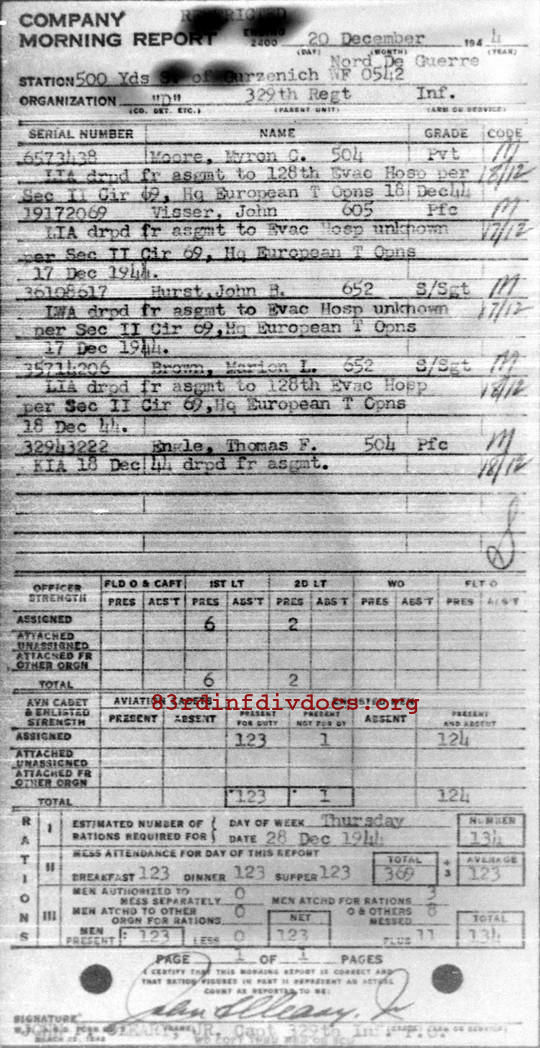 COMPANY RESTRICTED
MORNING REPORT ENDING 2400 20 December 1944
(DAY) (MONTH) (YEAR)
Nord De Guerre
STATION 500 Yds S. of Gurzenich WF 0542
ORGANIZATION "D" 329th Regt Inf.
(CO. DET. ETC.) (PARENT UNIT) (ARM OR SERVICE)
SERIAL NUMBER NAME GRADE CODE
6573438 Moore, Myron C. 504 Pvt M
LIA drpd fr asgmt to 128th Evac Hosp per 18/12
Sec II Cir 69, Hq European T Opns 18 Dec 44
19172069 Visser, John 605 Pfc M
LIA drpd fr asgmt to Evac Hosp unknown 17/12
per Sec II Cir 69, Hq European T Opns
17 Dec 1944.
36108617 Hurst, John R. 652 S/Sgt M
LWA drpd fr asgmt to Evac Hosp unknown 17/12
per Sec II Cir 69, Hq European T Opns
17 Dec 1944.
35714206 Brown, Marion L. 652 S/Sgt M
LIA drpd fr asgmt to 128th Evac Hosp 18/12
per Sec II Cir 69, Hq European T Opns
18 Dec 44.
32943222 Engle, Thomas F. 504 Pfc M
KIA 18 Dec 44 drpd fr asgmt. 18/12
OFFICER STRENGTH FLD O & CAPT 1ST LT 2D LT WO FLT O
PRES ABS'T PRES ABS'T PRES ABS'T PRES ABS'T PRES ABS'T
ASSIGNED 6 2
ATTACHED UNASSIGNED
ATTACHED FR OTHER ORGN
TOTAL 6 2
83rdinfdivdocs.org
AVN CADET & ENLISTED STRENGTH AVIATION CADETS ENLISTED MEN
PRESENT ABSENT PRESENT FOR DUTY PRESENT NOT FOR DY ABSENT PRESENT AND ABSENT
ASSIGNED 123 1 124
ATTACHED UNASSIGNED
ATTACHED FR OTHER ORGN
TOTAL 123 1 124
RATIONS
I ESTIMATED NUMBER OF RATIONS REQUIRED FOR DAY OF WEEK Thursday NUMBER
DATE 28 Dec 1944 134
II MESS ATTENDANCE FOR DAY OF THIS REPORT TOTAL ÷ 3 AVERAGE
BREAKFAST 123 DINNER 123 SUPPER 123 369 123
III MEN AUTHORIZED TO MESS SEPARATELY 0 MEN ATCHD FOR RATIONS 3
MEN ATCHD TO OTHER ORGN FOR RATIONS 0 NET O & OTHERS MESSED 8 TOTAL
MEN PRESENT 123 LESS 0 123 PLUS 11 134
PAGE 1 OF 1 PAGES
I CERTIFY THAT THIS MORNING REPORT IS CORRECT AND
THAT RATION FIGURES IN PART II REPRESENT AN ACTUAL
COUNT AS REPORTED TO ME:
SIGNATURE
JR. Capt 329th Inf.